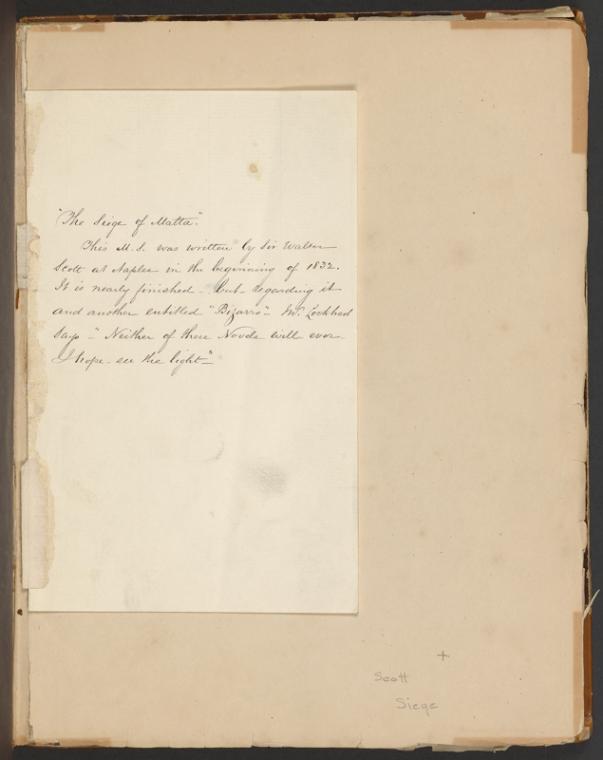 "The Seige of Malta".
This M.S. was written by Sir Walter
Scott at Naples in the beginning of 1832.
It is nearly finished - but regarding it
and another entitled "Bizarro" - Mr. Lockhart
says - "Neither of these Novels will ever
I hope - see the light" -
+
Scott
Siege